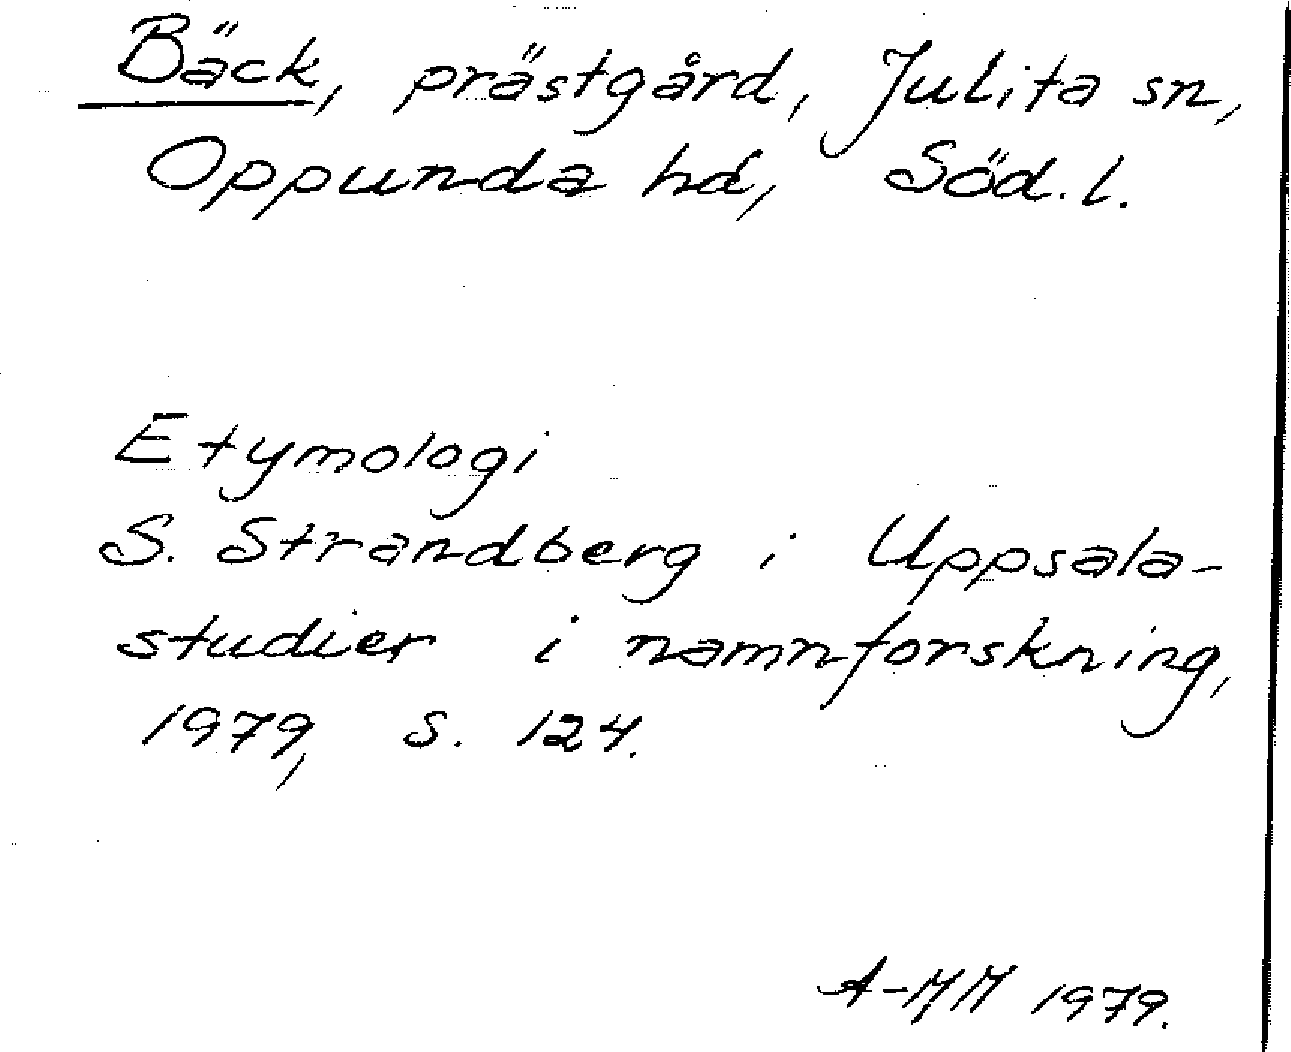 Bäck, prästgård, Julita sn,
Oppunda hd, Söd.l.
Etymologi
S. Strandberg i Uppsala-
studier i namnforskning,
1979, s. 124.
A-MM 1979.